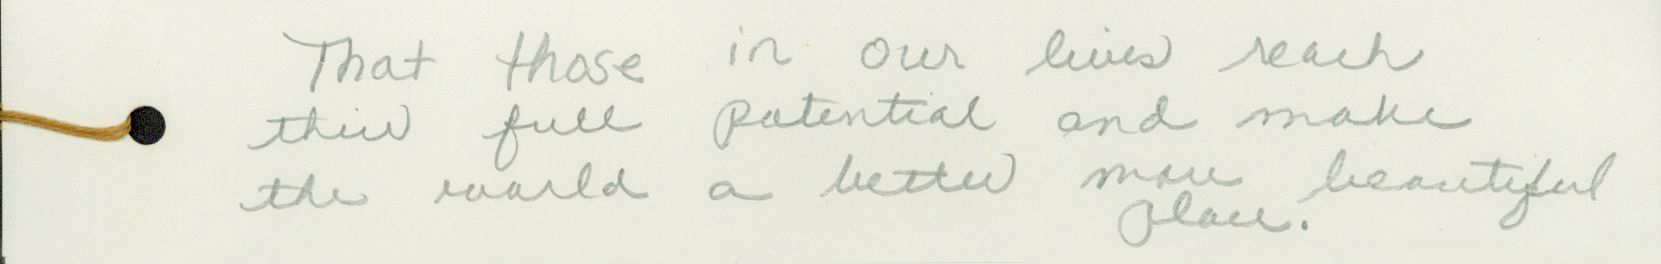 That those in our lives reach
their full potential and make
the world a better more beautiful
place.